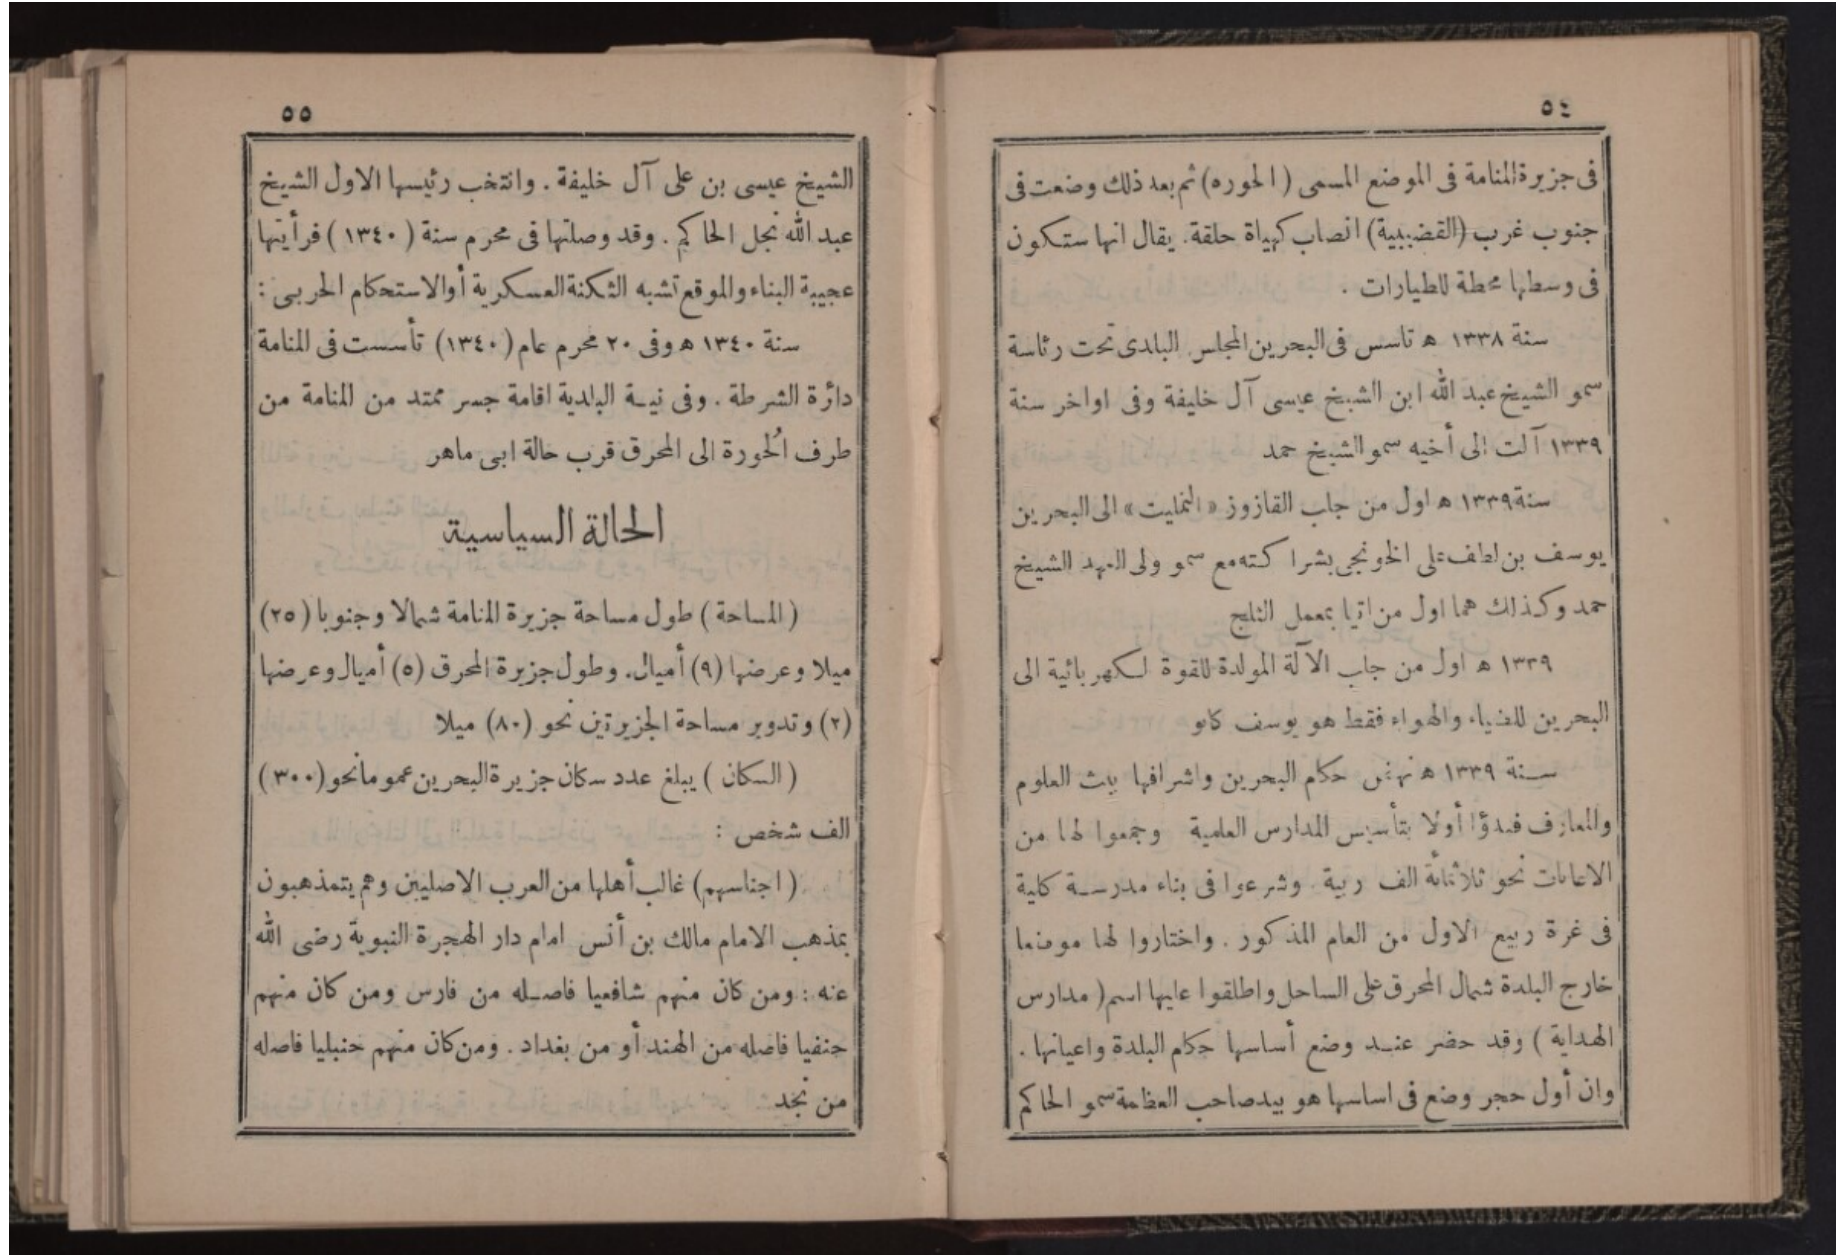 ٥٤
فى جزيرة المنامة فى الموضع المسمى ( الحوره ) ثم بعد ذلك وضعت فى
جنوب غرب (القضيبية) انصاب كهيأة حلقة. يقال انها ستكون
فى وسطها محطة للطيارات .
سنة ١٣٣٨ ه تاسس فى البحرين المجلس البلدى تحت رئاسة
سمو الشيخ عبد الله ابن الشيخ عيسى آل خليفة وفى اواخر سنة
١٣٣٩ آلت الى أخيه سمو الشيخ حمد
سنة ١٣٣٩ ه اول من جاب القازوز « النمليت » الى البحرين
يوسف بن لطف على الخونجى بشراكته مع سمو ولى العهد الشيخ
حمد وكذلك هما اول من اتيا بمعمل الثلج
١٣٣٩ ه اول من جاب الآلة المولدة للقوة لكهربائية الى
البحرين للضياء والهواء فقط هو يوسف كانو
سنة ١٣٣٩ ه نهض حكام البحرين واشرافها ببث العلوم
والمعارف فبدؤا أولا بتأسيس المدارس العلمية وجمعوا لها من
الاعانات نحو ثلاثمائة الف ربية وشرعوا فى بناء مدرسة كلية
فى غرة ربيع الاول من العام المذكور . واختاروا لها موضعا
خارج البلدة شمال المحرق على الساحل واطلقوا عليها اسم ( مدارس
الهداية ) وقد حضر عند وضع أساسها حكام البلدة واعيانها .
وان أول حجر وضع فى اساسها هو بيد صاحب العظمة سمو الحاكم
٥٥
الشيخ عيسى بن على آل خليفة . وانتخب رئيسها الاول الشيخ
عبد الله نجل الحاكم . وقد وصلتها فى محرم سنة ( ١٣٤٠ ) فرأيتها
عجيبة البناء والموقع تشبه الثكنة العسكرية أو الاستحكام الحربى :
سنة ١٣٤٠ ه وفى ٢٠ محرم عام ( ١٣٤٠ ) تأسست فى المنامة
دائرة الشرطة . وفى نية البلدية اقامة جسر ممتد من المنامة من
طرف الُحورة الى المحرق قرب حالة ابى ماهر
الحالة السياسية
( المساحة ) طول مساحة جزيرة المنامة شمالا وجنوبا ( ٢٥ )
ميلا وعرضها (٩) أميال. وطول جزيرة المحرق (٥) أميال وعرضها
(٢) وتدوير مساحة الجزيرتين نحو (٨٠) ميلا
( السكان ) يبلغ عدد سكان جزيرة البحرين عموما نحو ( ٣٠٠ )
الف شخص :
( اجناسهم ) غالب أهلها من العرب الاصليين وهم يتمذهبون
بمذهب الامام مالك بن أنس امام دار الهجرة النبوية رضى الله
عنه : ومن كان منهم شافعيا فاصله من فارس ومن كان منهم
حنفيا فاصله من الهند أو من بغداد . ومن كان منهم حنبليا فاصله
من نجد